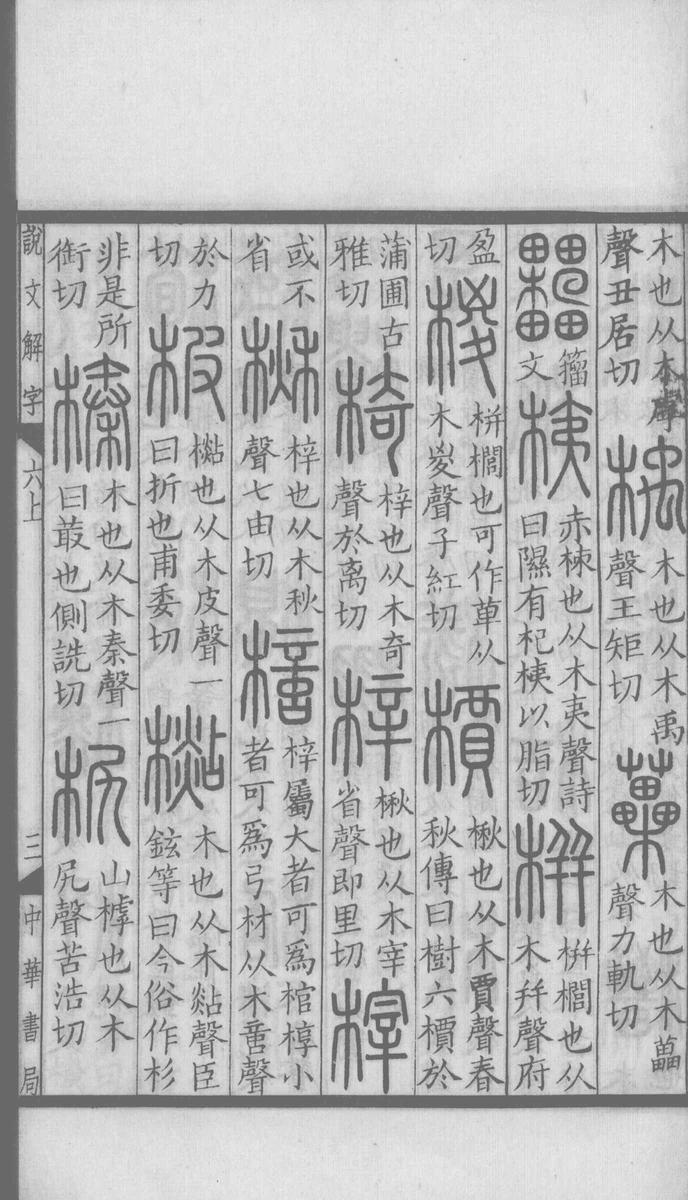 木也从木虖
聲丑居切
楀
木也从木禹
聲王矩切
藟
木也从木畾
聲力軌切
籒
文
桋
赤楝也从木夷聲詩
曰隰有杞桋以脂切
栟
栟櫚也从
木幷聲府
盈
切
椶
栟櫚也可作萆从
木㚇聲子紅切
檟
楸也从木賈聲春
秋傳曰樹六檟於
蒲圃古
雅切
椅
梓也从木奇
聲於离切
梓
楸也从木宰
省聲即里切
榟
或不
省
楸
梓也从木秋
聲七由切
㯆
梓屬大者可爲棺椁小
者可爲弓材从木啻聲
於力
切
柀
㯳也从木皮聲一
曰折也甫委切
㯳
木也从木煔聲臣
鉉等曰今俗作杉
非是所
銜切
榛
木也从木秦聲一
曰叢也側詵切
㞎
山樗也从木
尻聲苦浩切
說文解字
六上
三
中華書局